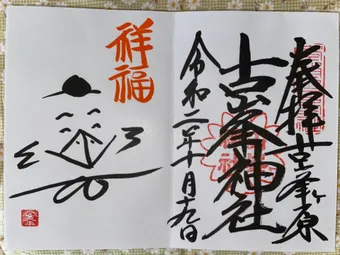 奉拝 古峯ヶ原
古峯神社
令和二年十月十九日
祥福